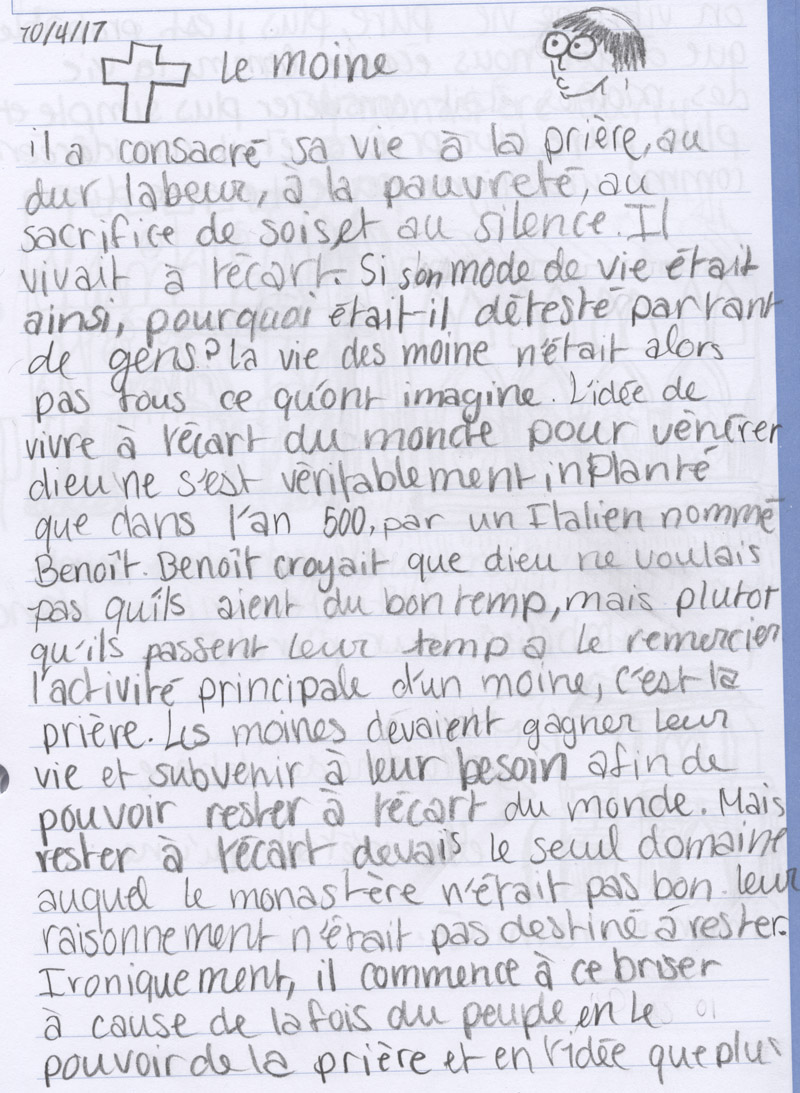 10/4/17
le moine
il a consacré sa vie à la prière, au
dur labeur, à la pauvreté, au
sacrifice de soiset au silence. Il
vivait à l'écart. Si son mode de vie était
ainsi, pourquoi était-il détesté par tant
de gens? la vie des moine n'était alors
pas tous ce qu'ont imagine. L'idée de
vivre à l'écart du monde pour vénérer
dieu ne s'est véritablement inplanté
que dans l'an 500, par un Italien nommé
Benoît. Benoît croyait que dieu ne voulais
pas qu'ils aient du bon temp, mais plutot
qu'ils passent leur temp à le remercier
l'activité principale d'un moine, c'est la
prière. Les moines devaient gagner leur
vie et subvenir à leur besoin afin de
pouvoir rester à l'écart du monde. Mais
rester à l'écart devais le seul domaine
auquel le monastère n'était pas bon. leur
raisonnement n'était pas destiné à rester.
Ironiquement, il commence à ce briser
à cause de la fois du peuple en le
pouvoir de la prière et en l'idée que plus